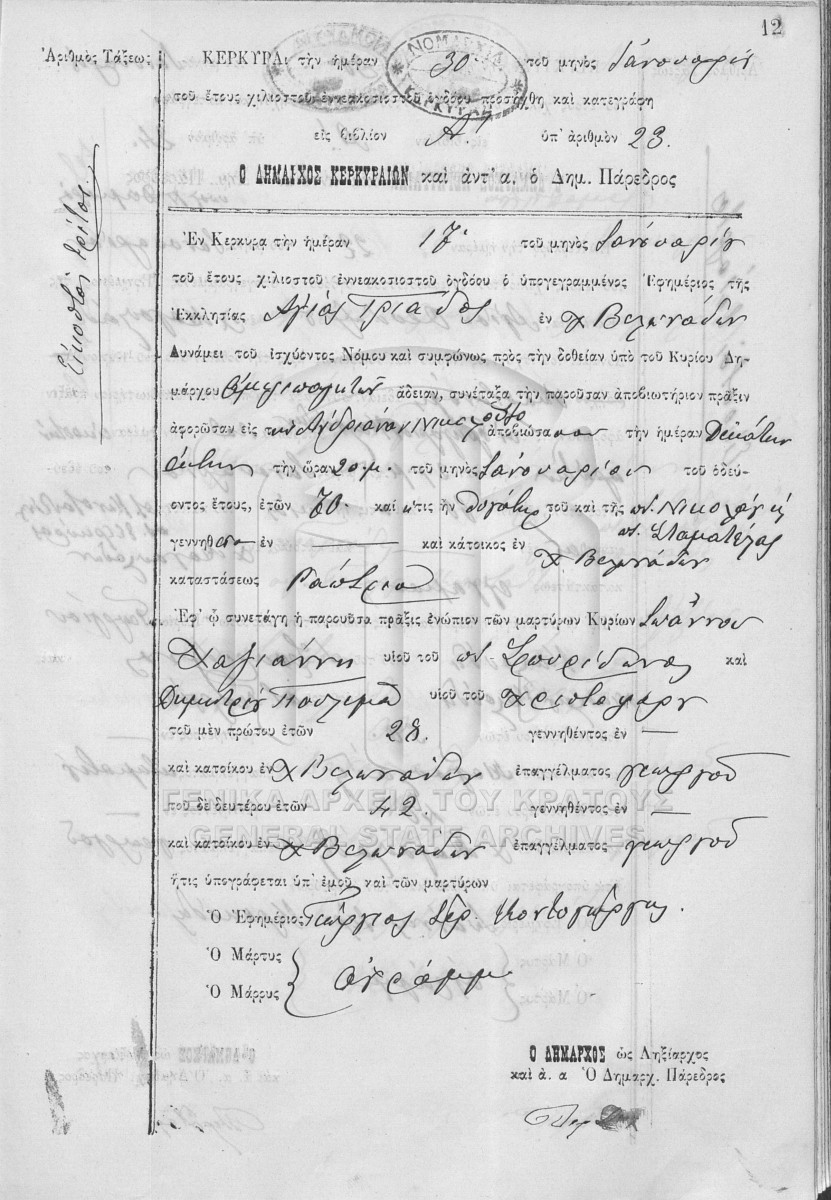 12
Ἀριθμὸς Τάξεως
ΝΟΜΑΡΧΙΑ ΚΕΡΚΥΡΑΣ
ΚΕΡΚΥΡΑι τὴν ἡμέραν 30 τοῦ μηνὸς Ἰανουαρίου
τοῦ ἔτους χιλιοστοῦ ἐννεακοσιοστοῦ ὀγδόου προσήχθη καὶ κατεγράφη
εἰς βιβλίον Α' ὑπ' ἀριθμὸν 23.
Ο ΔΗΜΑΡΧΟΣ ΚΕΡΚΥΡΑΙΩΝ καὶ ἀντ' α. ὁ Δημ. Πάρεδρος
Εἰκοστὸς τρίτος.
Ἐν Κερκυρα τὴν ἡμέραν 17. τοῦ μηνὸς Ἰανουαρίου
τοῦ ἔτους χιλιοστοῦ ἐννεακοσιοστοῦ ὀγδόου ὁ ὑπογεγραμμένος Ἐφημέριος τῆς
Ἐκκλησίας Ἁγίας Τριάδος ἐν Χ Βελονάδων
Δυνάμει τοῦ ἰσχύοντος Νόμου καὶ συμφώνως πρὸς τὴν δοθεῖαν ὑπὸ τοῦ Κυρίου Δη-
μάρχου ἄδειαν, συνέταξα τὴν παροῦσαν ἀποβιωτήριον πρᾶξιν
ἀφορῶσαν εἰς τὴν ἀποβιώσασαν τὴν ἡμέραν Δεκάτην
ἕκτην τὴν ὥραν 2 π.μ. τοῦ μηνὸς Ἰανουαρίου τοῦ ὁδεύ-
οντος ἔτους, ἐτῶν 70. καί τις ἦν θυγάτηρ τοῦ καὶ τῆς π. Νικολάου κ
π. Σταματέλας
γεννηθεῖσα ἐν — καὶ κάτοικος ἐν Χ Βελονάδων
καταστάσεως Ράπτρια
Ἐφ' ᾧ συνετάγη ἡ παροῦσα πρᾶξις ἐνώπιον τῶν μαρτύρων Κυρίων Ἰωάννου
Χαγιάννη υἱοῦ τοῦ π. Σπυρίδωνος καὶ
Δημητρίου υἱοῦ τοῦ Χριστοφόρου
τοῦ μὲν πρώτου ἐτῶν 28. γεννηθέντος ἐν —
καὶ κατοίκου ἐν Χ Βελονάδων ἐπαγγέλματος γεωργοῦ
ΓΕΝΙΚΑ ΑΡΧΕΙΑ ΤΟΥ ΚΡΑΤΟΥΣ
τοῦ δὲ δευτέρου ἐτῶν 42. γεννηθέντος ἐν —
GENERAL STATE ARCHIVES
καὶ κατοίκου ἐν Χ Βελονάδων ἐπαγγέλματος γεωργοῦ
ἥτις ὑπογράφεται ὑπ' ἐμοῦ καὶ τῶν μαρτύρων
Ὁ Ἐφημέριος Γεώργιος Ἱερ. Κοντογιώργης.
Ὁ Μάρτυς
Ὁ Μάρρυς ἀγράμμ
Ο ΔΗΜΑΡΧΟΣ ὡς Ληξίαρχος
καὶ ἀ. α Ὁ Δημαρχ. Πάρεδρος